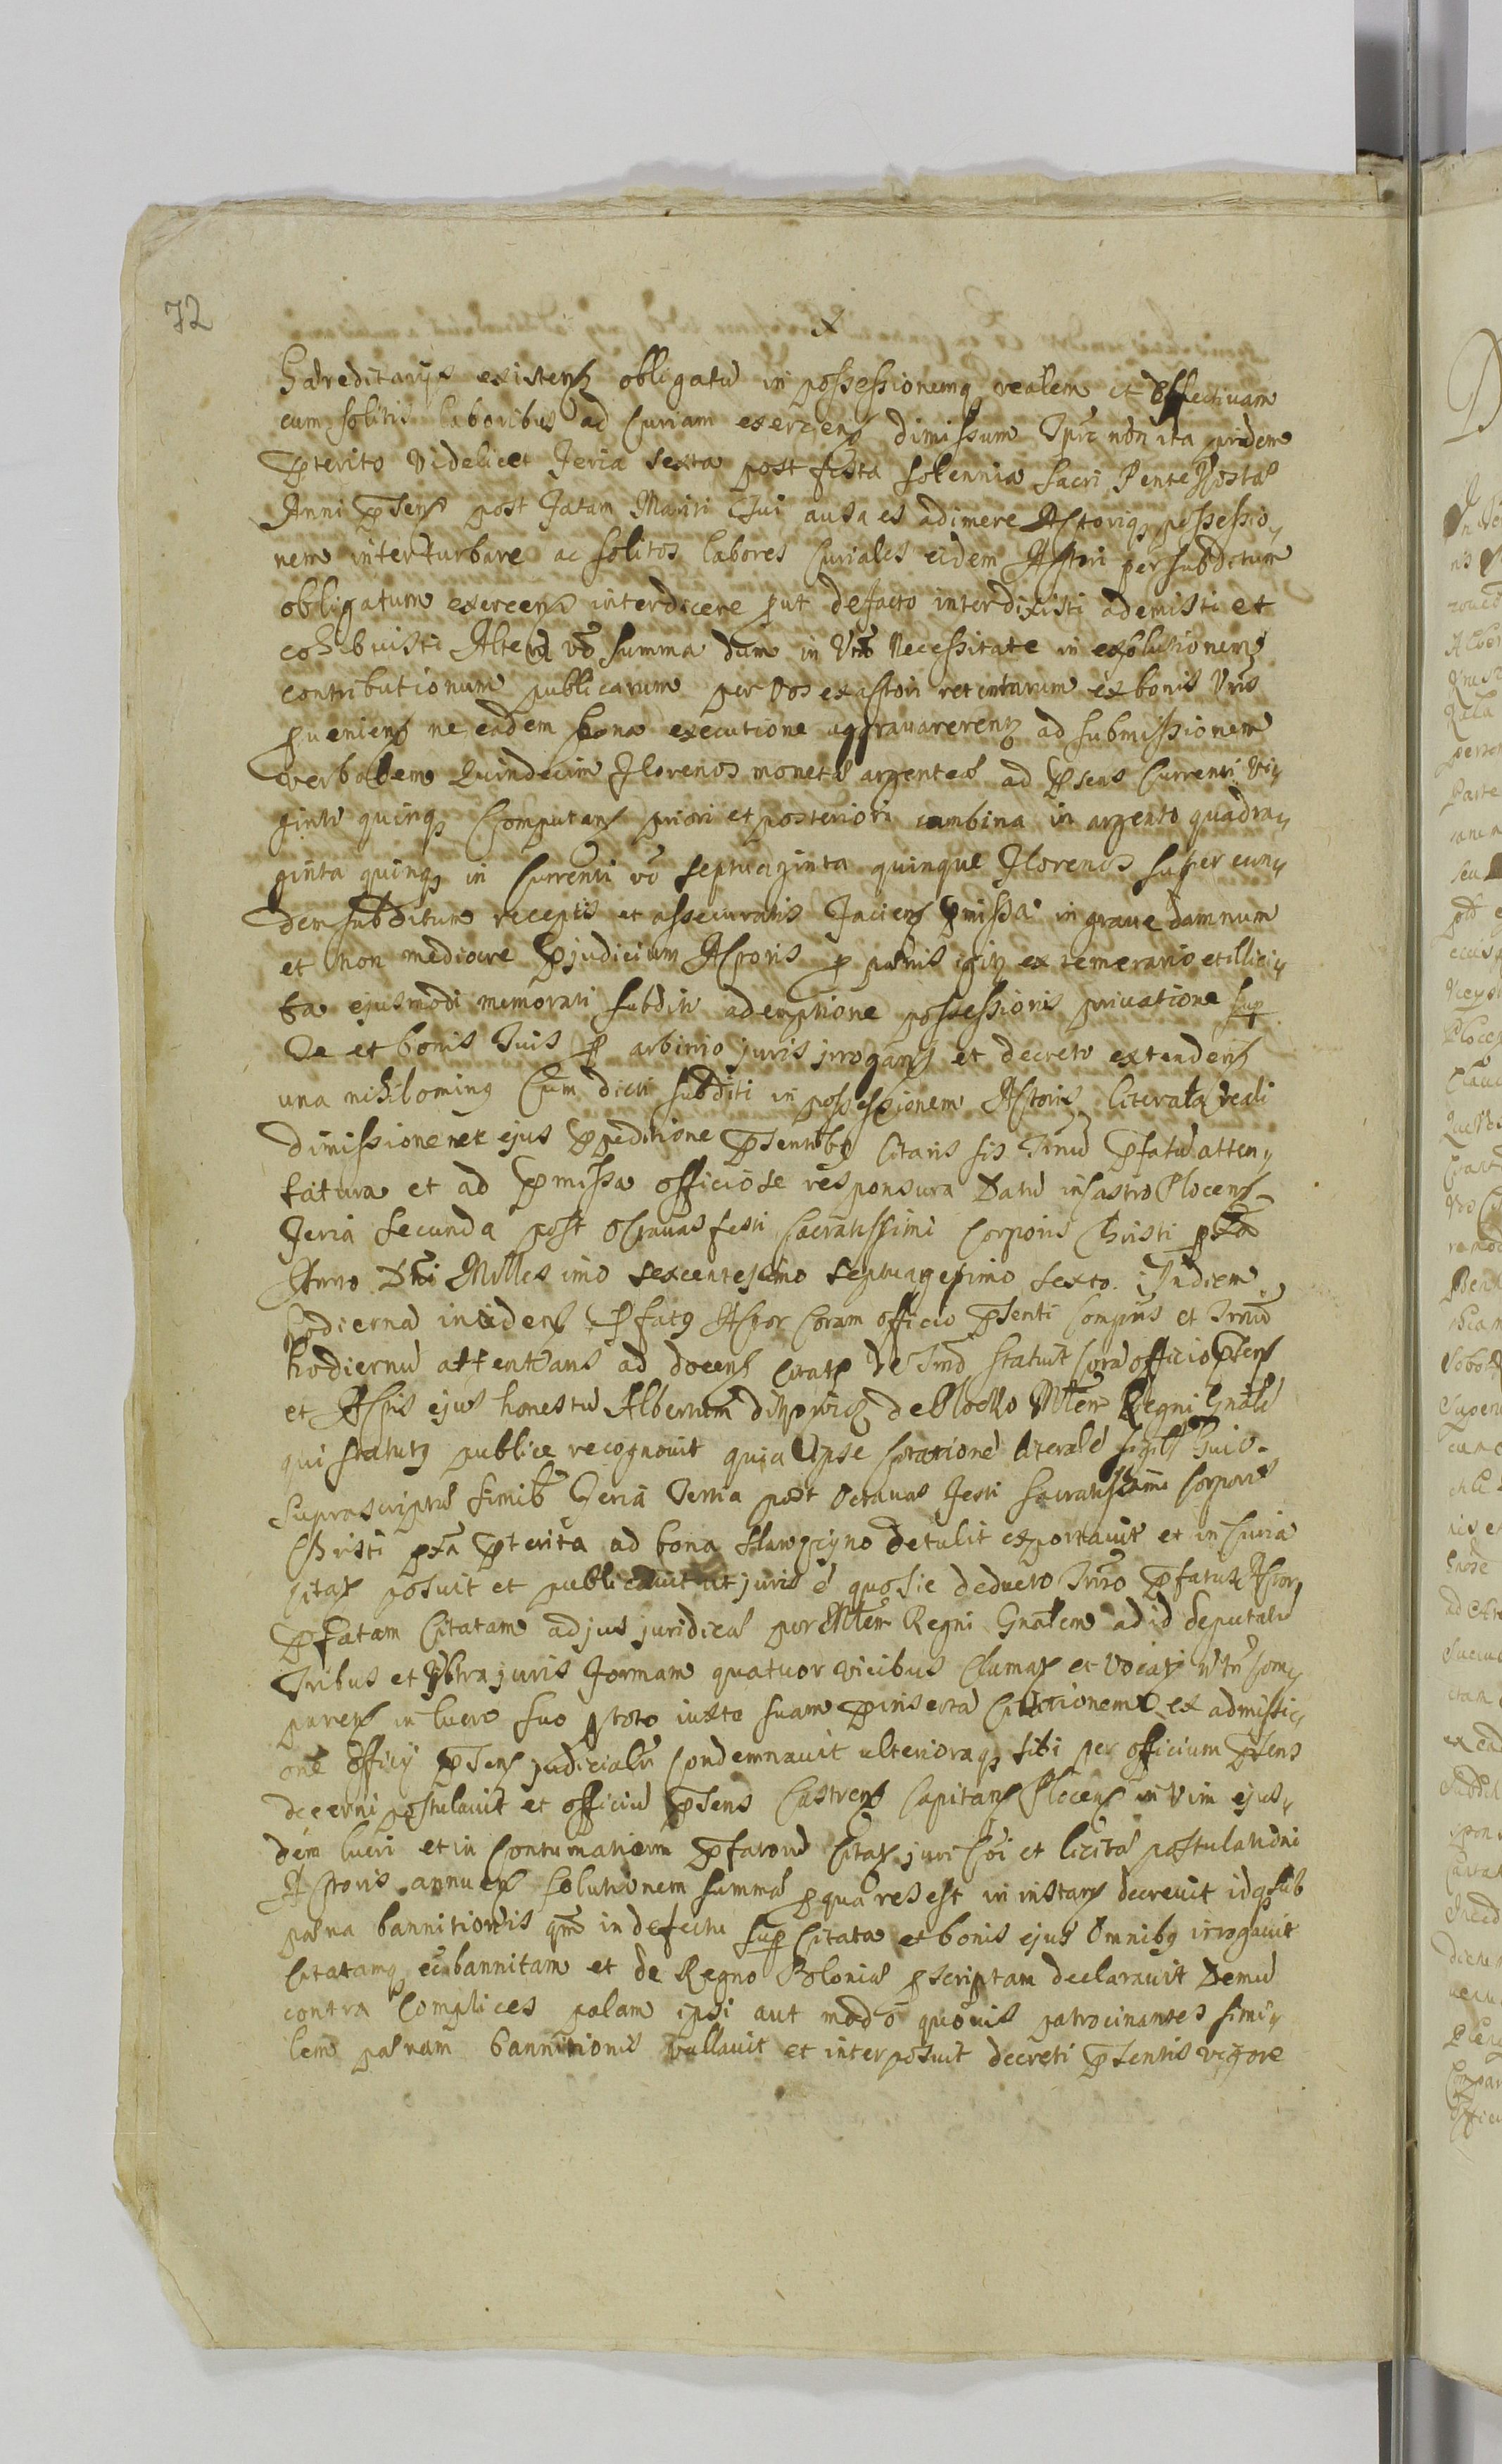 72
X
Haereditarijs existens obligatū in possessionemq realem et effectivam
cum solitis laboribus ad Curiam exercens dimissum Tpre non ita pridem
Pterito Videlicet Feria Sexta post festa solennia Sacri Pentecostes
Anni Psens post Fatam Mariti Tui ausa es adimere Actoriq possessio
nem interturbare ac solitos labores Curiales eidem Actori per subditum
obligatum exercens interdicere put defacto interdixisti ademisti et
cohibuisti Altera vo summa dum in Vra Necessitate in exolutionem
contributionum publicarum per Vos exactori retentarum ex bonis Vris
pueniens ne eadem bona executione aggravarerentq ad submissionem
verbalem Quindecim Florenos monetae argenteae ad Psens Currenti Vi
ginti quinq Computans priori et posteriori cambina in argento quadra
ginta quinq in Currenti vo Septuaginta quinque Florenos super eun
dem subditum receptis et assecuratis Faciens Pmissa in grave damnum
et non mediocre Pjudicium Actoris p paenis igitr ex temerario et illici
ta ejusmodi memorati subditi ademptione possessionis privatione sup
Te et bonis Tuis p arbitrio juris irrogans et decreto extendens
una nihilominq Cum dicti subditi in possessionem Actoris literata reali
dimissione nec ejus Ppeditione Psentibq Citaris sis Trnū Pfatū atten
tatura et ad Pmissa officiose responsura Datū in Castro Plocens
Feria Secunda post Octavas festi Sacratissimi Corporis Christi pxa
Anno Dni Millesimo Sexcentesimo Septuagesimo Sexto. In diem
hodiernā incidens Pfatq Actor Coram officio Psenti Compns et Trnū
hodiernū attentans ad docens Citats de Trno statuit Corā officio Psens
et Actis ejus honestū Albertum de Plocko Mtem Regni Gnalē
qui statutq publice recognovit quia Ipse Citationē literalē sigill huic
Suprascriptae simib Feria Tertia post Octavas Festi Sacratissimi Corporis
Christi pxa Pterita ad bona detulit exportavit et in Curia
Citats posuit et publicavit ut juris e quo sic deducto Trno Pfatus Actor
Pfatam Citatam ad jus juridice per Mtem Regni Gnalem ad id deputatū
Tribus et Ultra juris Formam quatuor vicibus Clamats et Vocats n tn Com
parens in lucro suo toto iuxta suam P inserta Citationem ex admissi
one Officij Psens judicialr Condemnavit ulterioraq sibi per officium Psens
decerni postulavit et officiū Psens Castrens Capitans Plocens in Vim ejus
dem lucri et in Contumatiam Pfatorū Citats juri Coi et licitae postulationi
Actoris annuens Solutionem summae p qua res est in instans decrevit idq sub
paena bannitionis qm in defectu sup Citata et bonis ejus Omnibq irrogavit
Citatamq ee bannitam et de Regno Poloniae pscriptam declaravit Demū
contra Complices palam ipsi aut modo quovis patrocinantes simi
lem paenam bannitionis vallavit et interposuit decreti Psentis vigore